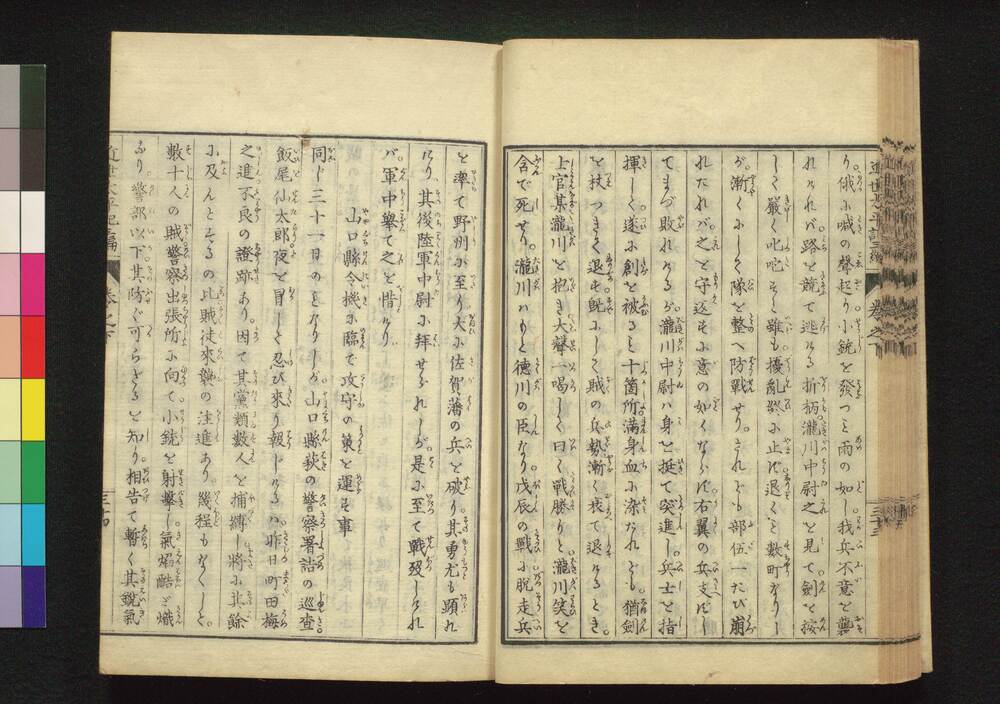 り。俄に喊の聲起り小銃を發つこと雨の如し我兵不意を襲
れけれバ路を競て逃ける折柄瀧川中尉之を見て劍を按
しく嚴く叱咤すと雖も擾亂終に止ず退くこと數町ばかり
が漸くにしく隊を整へ防戰せり。されども部伍一たび崩
れたれバ之を守返すに意の如くならず右翼の兵支ずし
てまづ敗れけるが瀧川中尉ハ身を挺て突進し兵士を指
揮しく遂に創を被ること十箇所滿身血に染たれども猶劍
を杖つきく退ず既にして賊の兵勢漸く衰て退けるとき。
上官某瀧川を抱き大聲一喝しく曰く戰勝りと瀧川笑を
含で死せり。瀧川ハもと德川の臣なり戊辰の戰に脱走兵
を率て野州に至り大に佐賀藩の兵を破り其勇尤も顕れ
けり其後陸軍中尉に拜せられしが是に至て戰歿しけれ
バ。軍中擧て之を惜けり
山口縣令機に臨で攻守の策を運す事
同じ三十一日のことなりしが。山口縣萩の警察署詰の巡査
飯尾仙太郎夜を冒しく忍び來り報じけるハ。昨日町田梅
之進不良の證跡あり。因て其黨類數人を捕縛し將に其餘
に及んとするの此賊徒來襲の注進あり。幾程もなくしく。
數十人の賊警察出張所に向て。小銃を射撃し氣焔酷ど熾
なり警部以下。其防ぐ可らざるを知り相告て暫く其鋭氣
近世太平記三編
卷之下
三十三
三十四